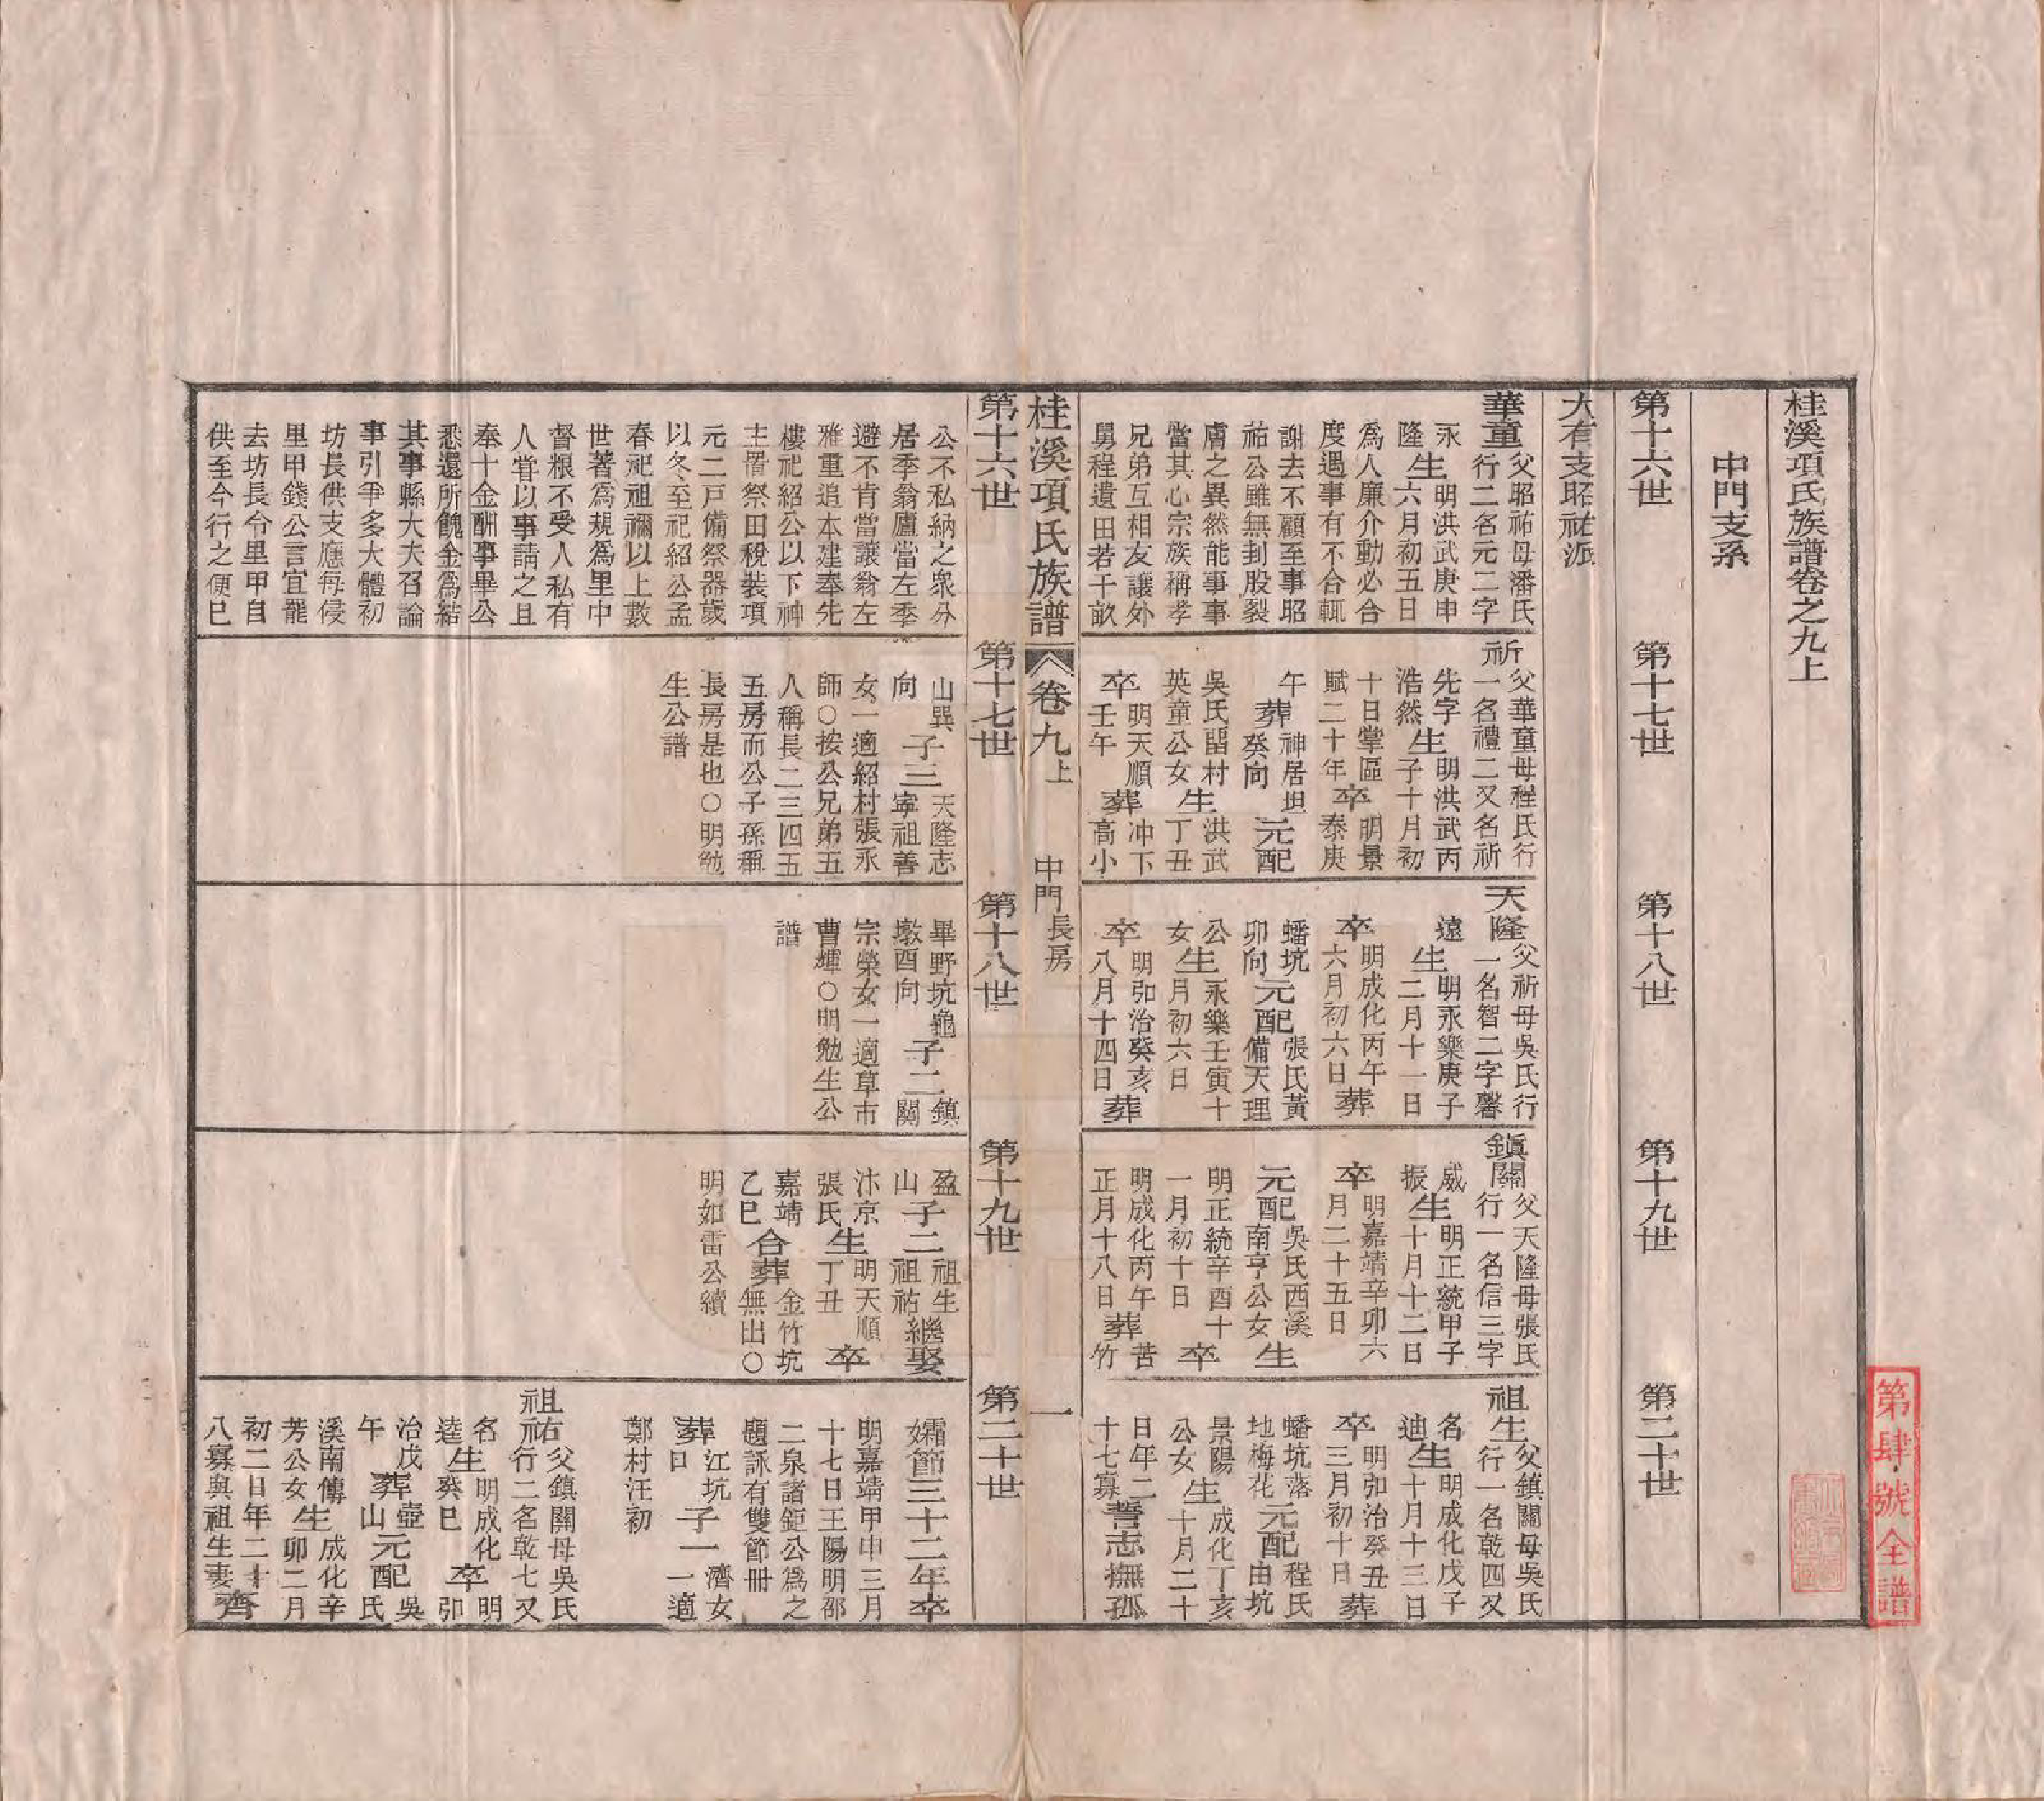 桂溪項氏族譜卷之九上
中門支系
第十六世
第十七世
第十八世
第十九世
第二十世
大有支昭祐派
華童
父昭祐母潘氏
行二名元二字
永隆
生
明洪武庚申
六月初五日
為人廉介動必合
度遇事有不合輒
謝去不顧至事昭
祐公雖無刲股裂
膚之異然能事事
當其心宗族稱孝
兄弟互相友讓外
舅程遺田若干畝
祈
父華童母程氏行
一名禮二又名祈
先字
浩然
生
明洪武丙
子十月初
十日掌區
賦二十年
卒
明景
泰庚
午
葬
神居坦
癸向
元配
吳氏留村
英童公女
生
洪武
丁丑
卒
明天順
壬午
葬
冲下
高小
天隆
父祈母吳氏行
一名智二字馨
遠
生
明永樂庚子
二月十一日
卒
明成化丙午
六月初六日
葬
蟠坑
卯向
元配
張氏黃
備天理
公
女
生
永樂壬寅十
月初六日
卒
明弘治癸亥
八月十四日
葬
鎮關
父天隆母張氏
行一名信三字
威
振
生
明正統甲子
十月十二日
卒
明嘉靖辛卯六
月二十五日
元配
吳氏西溪
南亨公女
生
明正統辛酉十
一月初十日
卒
明成化丙午
正月十八日
葬
苦
竹
祖生
父鎮關母吳氏
行一名乾四又
名
迪
生
明成化戊子
十月十三日
卒
明弘治癸丑
三月初十日
葬
蟠坑落
地梅花
元配
程氏
由坑
景陽
公女
生
成化丁亥
十月二十
日年二
十七寡
誓志撫孤
桂溪項氏族譜
卷九上
中門長房
一
第十六世
第十七世
第十八世
第十九世
第二十世
公不私納之衆分
居季翁廬當左季
避不肯當讓翁左
雅重追本建奉先
樓祀紹公以下神
主置祭田稅裝項
元二戸備祭器歲
以冬至祀紹公孟
春祀祖禰以上數
世著為規為里中
督糧不受人私有
人甞以事請之且
奉十金酬事畢公
悉還所餽金為結
其事縣大夫召論
事引爭多大體初
坊長供支應每侵
里甲錢公言宜罷
去坊長令里甲自
供至今行之便巳
山巽
向
子三
天隆志
寧祖善
女一適紹村張永
師○按公兄弟五
人稱長二三四五
五房而公子孫稱
長房是也○明勉
生公譜
畢野坑龜
墩酉向
子二
鎮
關
宗榮女一適草市
曹煇○明勉生公
譜
盈
山
子二
祖生
祖祐
繼娶
汴京
張氏
生
明天順
丁丑
卒
嘉靖
乙巳
合葬
金竹坑
無出○
明如雷公續
孀節三十二年卒
明嘉靖甲申三月
十七日王陽明邵
二泉諸鉅公為之
題詠有雙節冊
葬
江坑
口
子一
濟女
一適
鄭村汪初
祖祐
父鎮關母吳氏
行二名乾七又
名
逵
生
明成化
癸巳
卒
明
弘
治戊
午
葬
壺
山
元配
吳
氏
溪南傳
芳公女
生
成化辛
卯二月
初二日年二十
八寡與祖生妻
齊
第肆號全譜